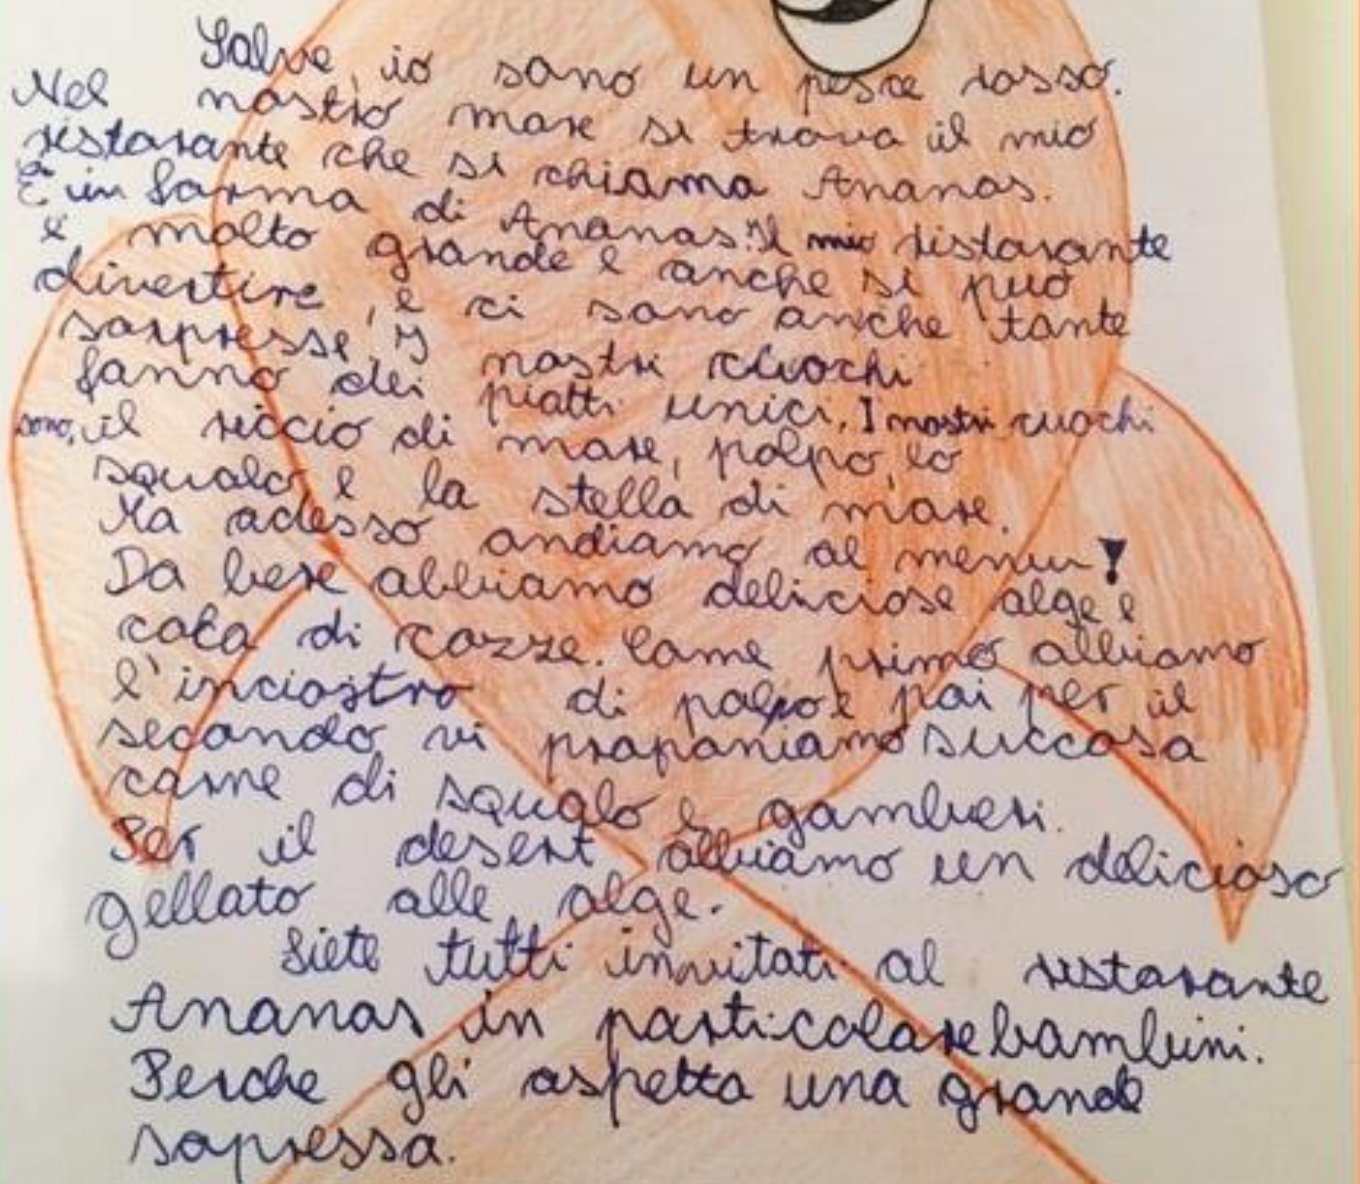 Salve, io sono un pesce rosso.
Nel nostro mare si trova il mio
ristorante che si chiama Ananas.
È in forma di Ananas. Il mio ristorante
è molto grande e anche si può
divertire, e ci sono anche tante
sorpresse, I nostri chuochi
fanno dei piatti unici, I nostri cuochi
sono, il riccio di mare, polpo, lo
squalo, e la stella di mare.
Ma adesso andiamo al menu!
Da bere abbiamo deliciose alge e
coca di cozze. Come primo abbiamo
l'inciostro di polpo e poi per il
secondo vi proponiamo succosa
carne di squalo e gamberi.
Per il desert abbiamo un delicioso
gellato alle alge.
Siete tutti invitati al ristorante
Ananas in particolare bambini.
Perche gli aspetta una grande
sopressa.